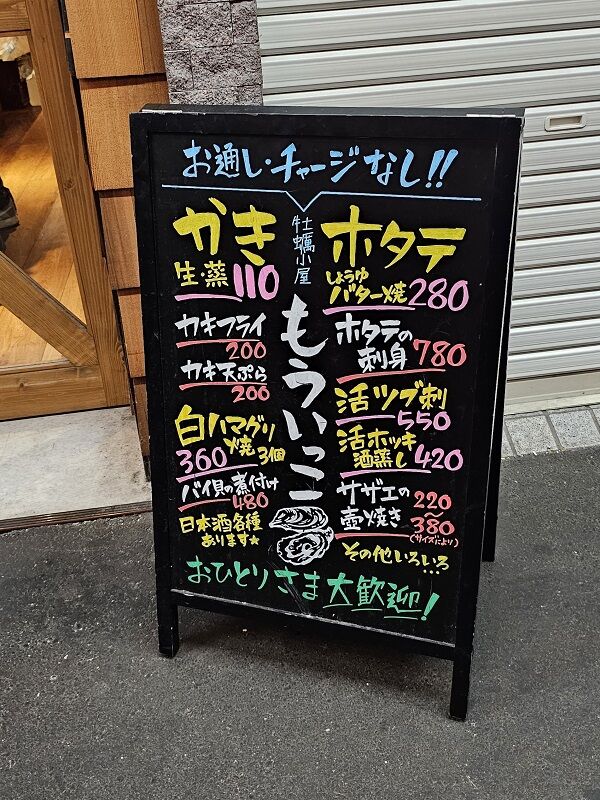 お通し・チャージなし!!
牡蠣小屋
もういっこ
かき
生・蒸 110
カキフライ
200
カキ天ぷら
200
白ハマグリ
焼
360 3個
バイ貝の煮付け
480
日本酒各種
あります★
ホタテ
しょうゆ
バター焼 280
ホタテの
刺身 780
活ツブ刺
550
活ホッキ
酒蒸し 420
サザエの
壺焼き
220
〜
380
(サイズにより)
その他いろいろ…
おひとりさま大歓迎!